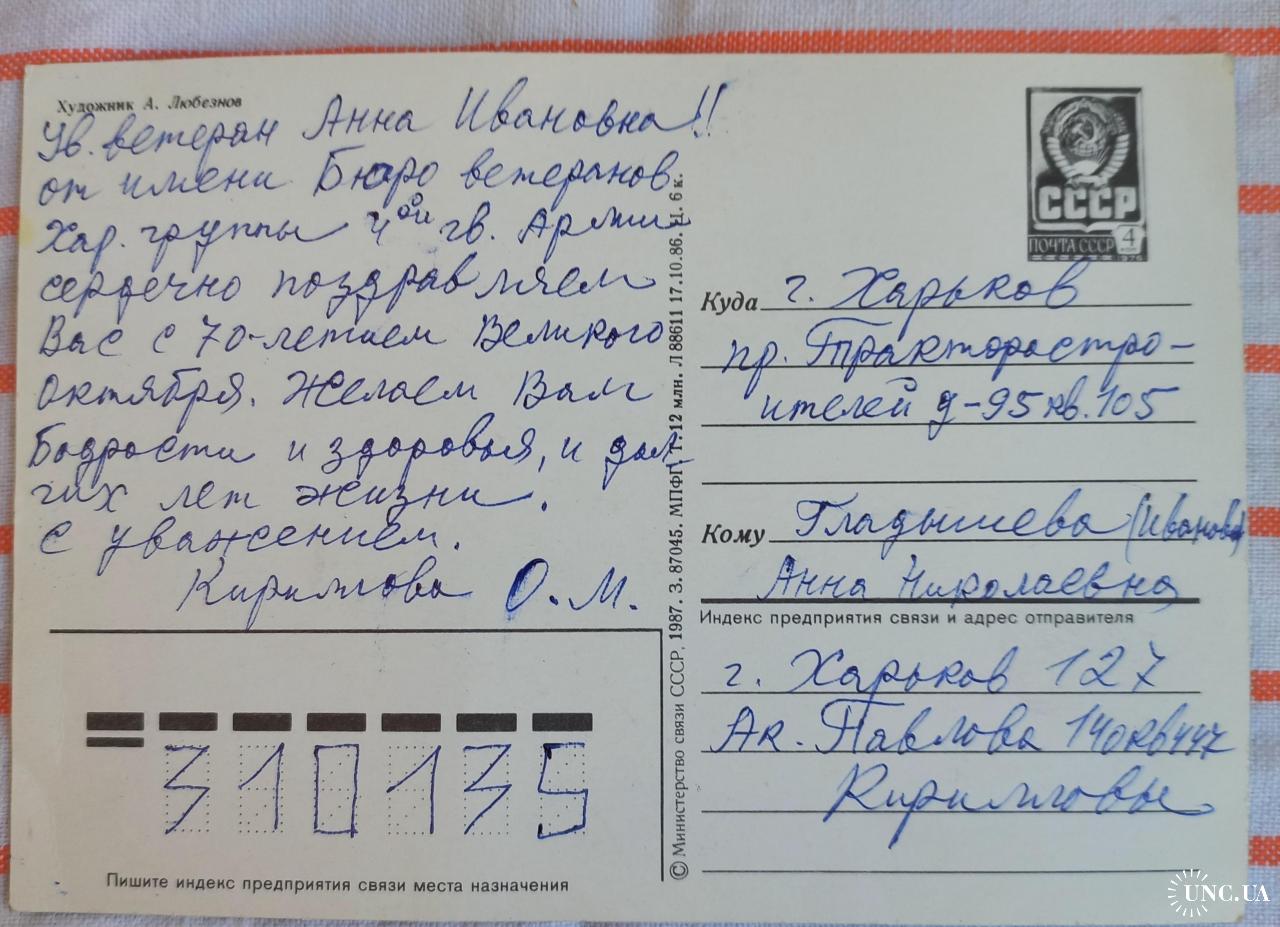 Художник А. Любезнов
Ув. ветеран Анна Ивановна!!
от имени Бюро ветеранов
Хар. группы 4ой гв. Армии
сердечно поздравляем
Вас с 70-летием Великого
Октября. Желаем Вам
Бодрости и здоровья, и дол-
гих лет жизни.
С уважением.
Кириллова О. М.
Пишите индекс предприятия связи места назначения
310135
© Министерство связи СССР, 1987. З. 87045. МПФГ. т. 12 млн. Л 88611 17.10.86. Ц. 6 к.
СССР
ПОЧТА СССР 4
1976
Куда г. Харьков
пр. Тракторостро-
ителей д-95 кв. 105
Кому Гладышева (Иванова)
Анна Николаевна
Индекс предприятия связи и адрес отправителя
г. Харьков 127
Ак. Павлова 140 кв 447
Кирилловы
UNC.UA